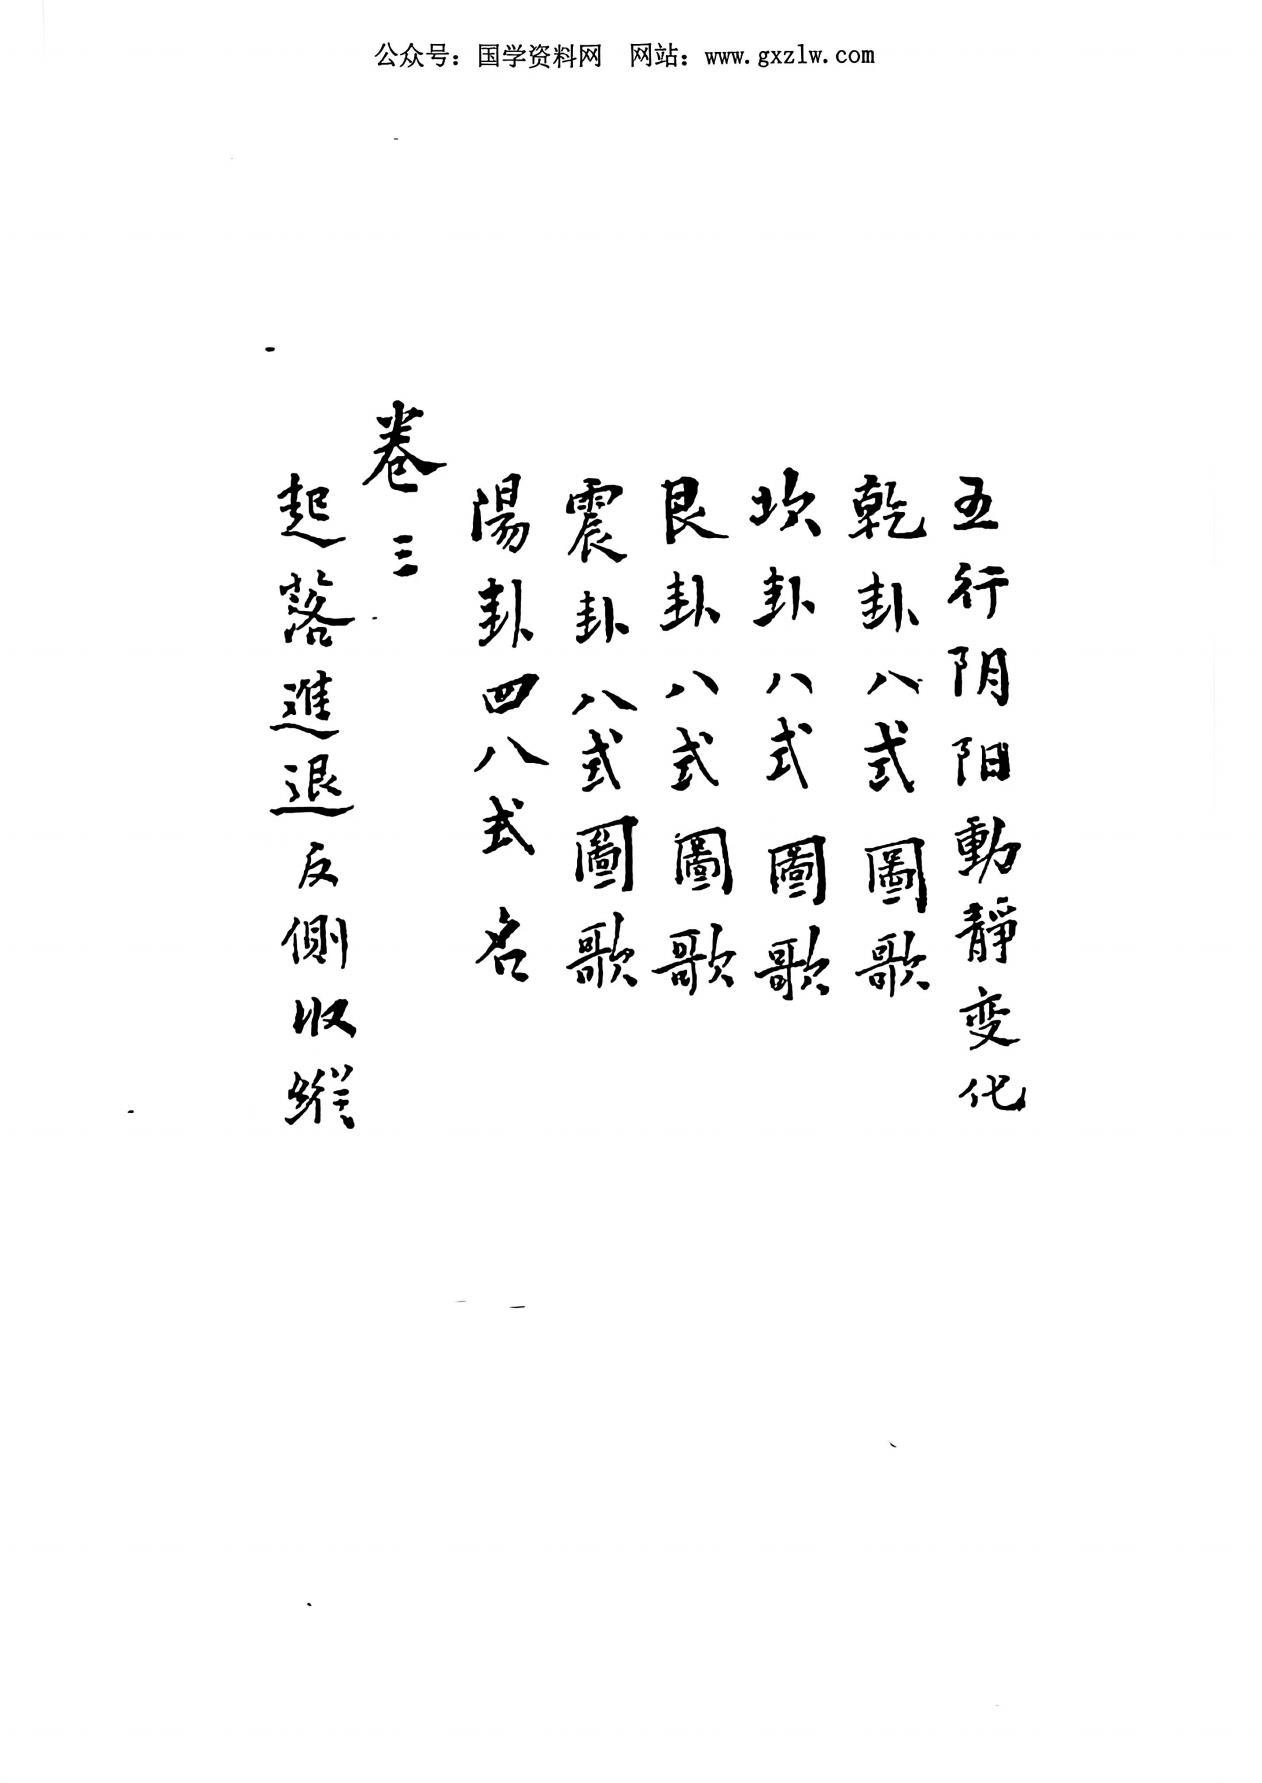 公众号：国学资料网　网站：www.gxzlw.com
五行阴阳動靜变化
乾卦八式圖歌
坎卦八式圖歌
艮卦八式圖歌
震卦八式圖歌
陽卦四八式名
卷三
起落進退反側收縱